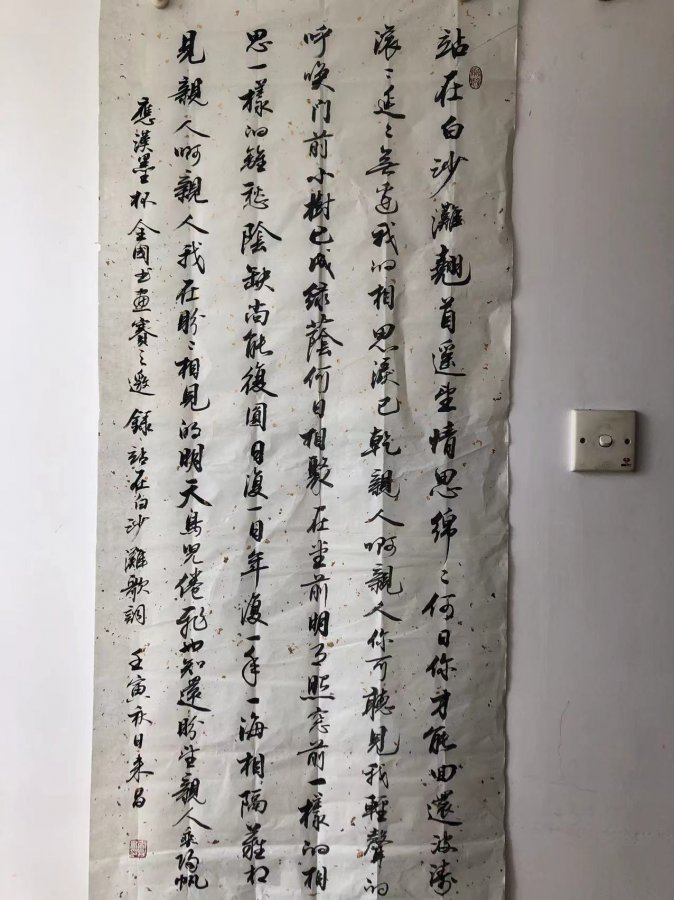 站在白沙灘翹首遥望情思綿々何日你才能回還波濤
滾々延々無邊我的相思淚已乾親人啊親人你可聽見我輕聲的
呼唤门前小樹已成绿蔭何日相聚在堂前明月照窓前一樣的相
思一樣的離愁陰缺尚能復圓日復一日年復一年一海相隔難相
見親人啊親人我在盼々相見的明天鳥兒倦飛也知還盼望親人乘归帆
應漢墨杯全國书畫賽之邀 錄站在白沙灘歌詞 壬寅秋日来昌